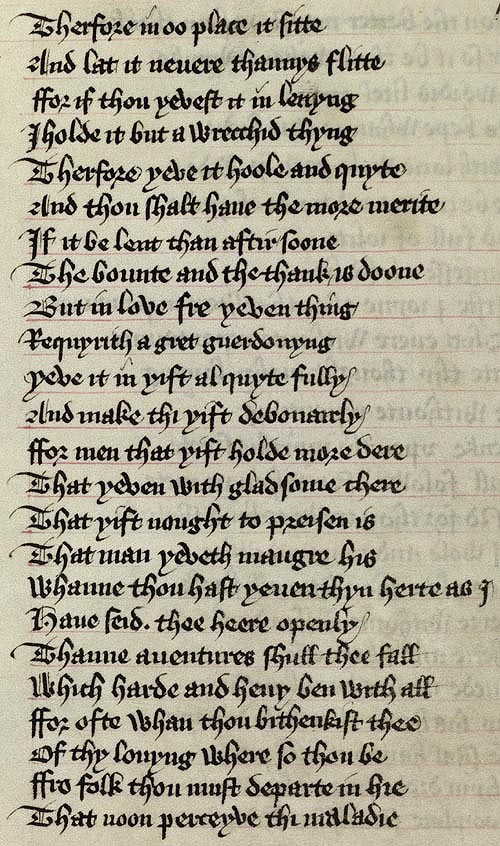 Therfore in oo place it sitte
And lat it neuere thannys flitte
ffor if thou yevest it in lenyng
I holde it but a wrecchid thyng
Therfore yeve it hoole and quyte
And thou shalt haue the more merite
If it be lent than aftir soone
The bounte and the thank is doone
But in love fre yeven thing
Requyrith a gret guerdonyng
yeve it in yift al quyte fully
And make thi yift debonairly
ffor men that yift holde more dere
That yeven with gladsome chere
That yift nought to preisen is
That man yeveth maugre his
Whanne thou hast yeuen thyn herte as I
Haue seid. thee heere openly
Thanne auentures shull thee fall
Which harde and heuy ben with all
ffor ofte whan thou bithenkist thee
Of thy louyng where so thou be
ffro folk thou must departe in hie
That noon perceyve thi maladie